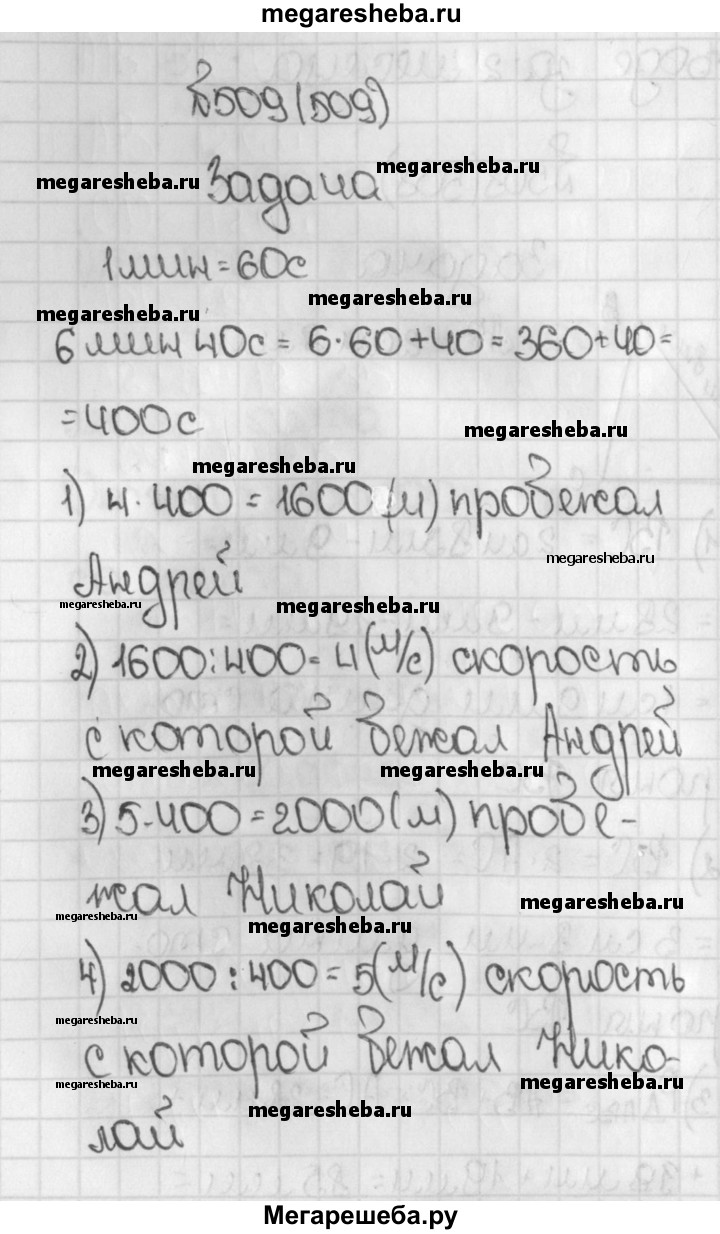 megaresheba.ru
№509(509)
megaresheba.ru
megaresheba.ru
Задача
1 мин = 60с
megaresheba.ru
megaresheba.ru
6 мин 40с = 6·60+40 = 360+40 =
= 400с
megaresheba.ru
megaresheba.ru
1) 4·400 = 1600 (м) пробежал
megaresheba.ru
Андрей
megaresheba.ru
megaresheba.ru
2) 1600:400 = 4 (м/с) скорость
с которой бежал Андрей
megaresheba.ru
megaresheba.ru
3) 5·400 = 2000 (м) пробе-
жал Николай
megaresheba.ru
megaresheba.ru
4) 2000:400 = 5 (м/с) скорость
megaresheba.ru
с которой бежал Нико-
megaresheba.ru
megaresheba.ru
megaresheba.ru
лай
Мегарешеба.ру